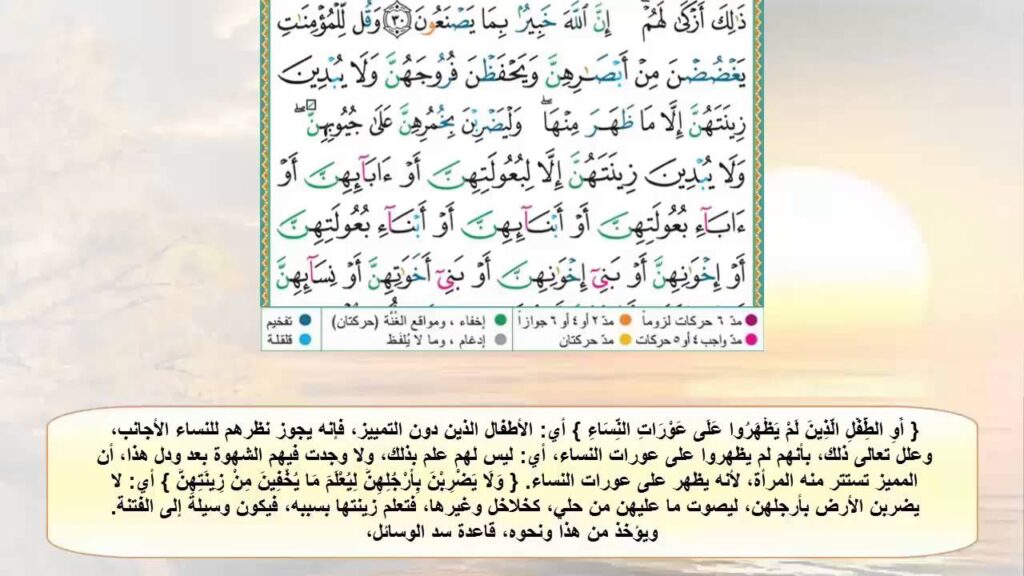 ذَٰلِكَ أَزْكَىٰ لَهُمْ ۗ إِنَّ ٱللَّهَ خَبِيرٌۢ بِمَا يَصْنَعُونَ ﴿٣٠﴾ وَقُل لِّلْمُؤْمِنَٰتِ
يَغْضُضْنَ مِنْ أَبْصَٰرِهِنَّ وَيَحْفَظْنَ فُرُوجَهُنَّ وَلَا يُبْدِينَ
زِينَتَهُنَّ إِلَّا مَا ظَهَرَ مِنْهَا ۖ وَلْيَضْرِبْنَ بِخُمُرِهِنَّ عَلَىٰ جُيُوبِهِنَّ ۖ
وَلَا يُبْدِينَ زِينَتَهُنَّ إِلَّا لِبُعُولَتِهِنَّ أَوْ ءَابَآئِهِنَّ أَوْ
ءَابَآءِ بُعُولَتِهِنَّ أَوْ أَبْنَآئِهِنَّ أَوْ أَبْنَآءِ بُعُولَتِهِنَّ
أَوْ إِخْوَٰنِهِنَّ أَوْ بَنِىٓ إِخْوَٰنِهِنَّ أَوْ بَنِىٓ أَخَوَٰتِهِنَّ أَوْ نِسَآئِهِنَّ
مدّ ٦ حركات لزوماً مدّ ٢ أو ٤ أو ٦ جوازاً إخفاء ، ومواقع الغُنَّة (حركتان) تفخيم
مدّ واجب ٤ أو ٥ حركات مدّ حركتان إدغام ، وما لا يُلفظ قلقلة
{ أَوِ الطِّفْلِ الَّذِينَ لَمْ يَظْهَرُوا عَلَى عَوْرَاتِ النِّسَاءِ } أي: الأطفال الذين دون التمييز، فإنه يجوز نظرهم للنساء الأجانب،
وعلل تعالى ذلك، بأنهم لم يظهروا على عورات النساء، أي: ليس لهم علم بذلك، ولا وجدت فيهم الشهوة بعد ودل هذا، أن
المميز تستتر منه المرأة، لأنه يظهر على عورات النساء. { وَلَا يَضْرِبْنَ بِأَرْجُلِهِنَّ لِيُعْلَمَ مَا يُخْفِينَ مِنْ زِينَتِهِنَّ } أي: لا
يضربن الأرض بأرجلهن، ليصوت ما عليهن من حلي، كخلاخل وغيرها، فتعلم زينتها بسببه، فيكون وسيلة إلى الفتنة.
ويؤخذ من هذا ونحوه، قاعدة سد الوسائل،